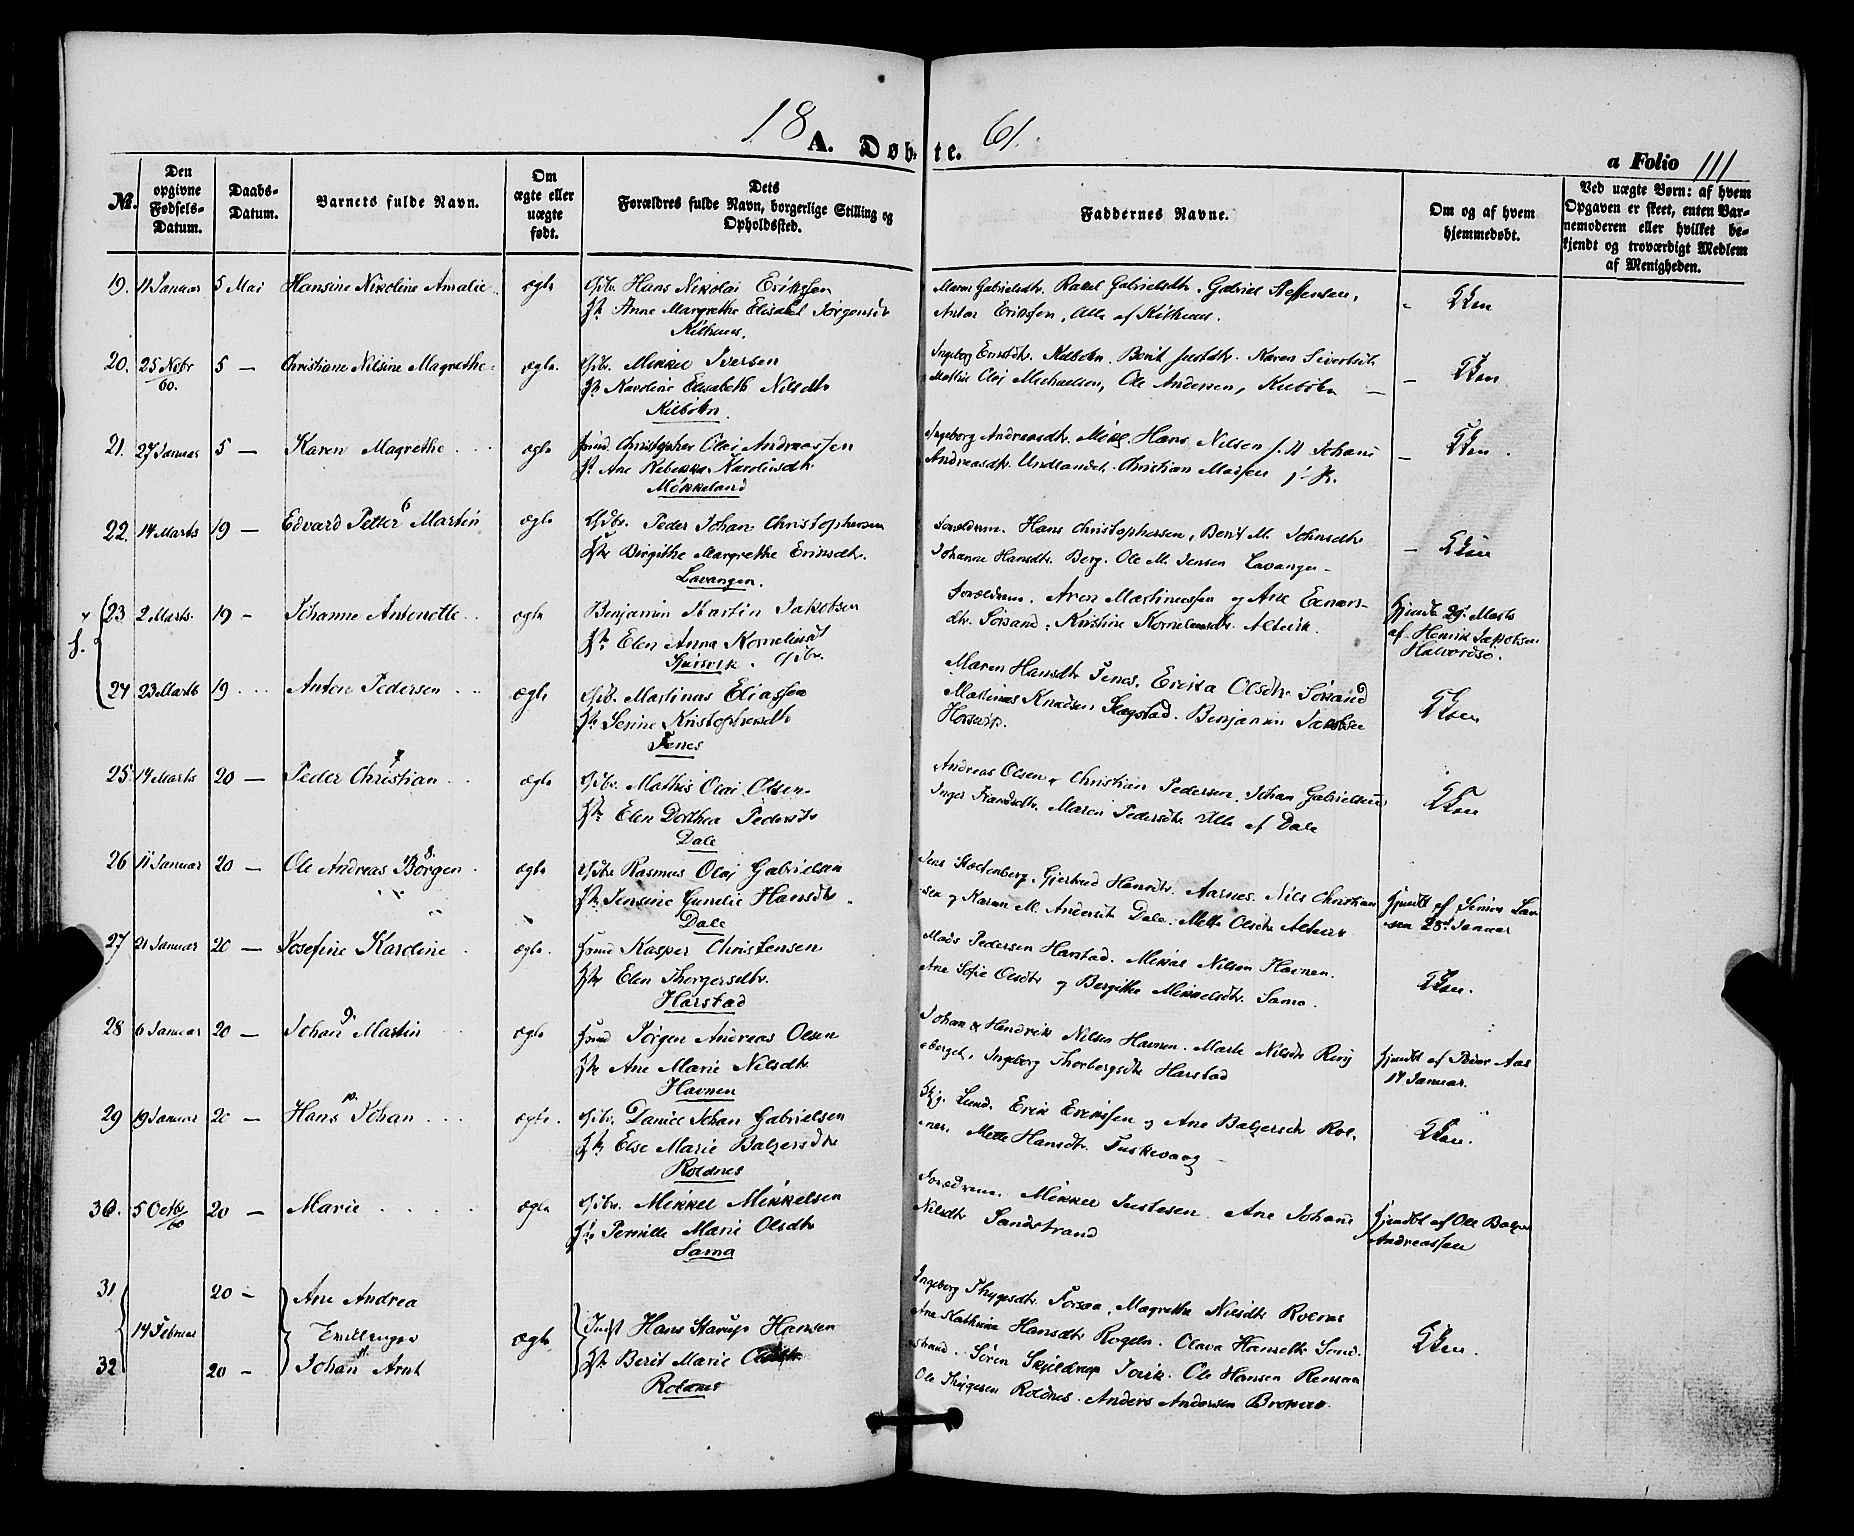 18 A. Døbte. 61.
a Folio 111
№.
Den opgivne Fødsels-Datum.
Daabs-Datum.
Barnets fulde Navn.
Om ægte eller uægte født.
Dets Forældres fulde Navn, borgerlige Stilling og Opholdssted.
Faddernes Navne.
Om og af hvem hjemmedøbt.
Ved uægte Børn: af hvem Opgaven er skeet, enten Barnemoderen eller hvilket bekjendt og troværdigt Medlem af Menigheden.
19. 11 Januar 5 Mai Hansine Nikoline Amalie ægte Gdbr. Hans Nikolai Eriksen
Anne Margrethe Elisabet Jørgensdt
Kilhuus.
Maren Gabrielsdtr. Rakel Gabrielsdtr. Gabriel Steffensen,
Anton Eriksen, Alle af Kilhuus.
20. 25 Novbr 60. 5 — Christiane Nilsine Magrethe ægte. Gdbr. Mikkel Iversen
Karoline Elisabeth Nilsdtr
Kilbotn.
Kilbotn. Berit Karen Sivertsdtr
Olaj Michaelsen, Ole Andersen, Kilbotn —
21. 27 Januar 5 — Karen Magrethe ægte Christopher Olaj Andreassen
Ane Rebekka Karolinsdtr
Møkkeland
Ingeborg Andreasdtr. Hans Nilsen Johans
Andreasdtr. Undlandet. Christian Madsen
22. 14 Marts 19 — Edvard Petter 6 Martin ægte Gdbr. Peder Johan Christophersen
Birgithe Margrethe Eriksdtr.
Lavangen.
Forældrene. Hans Christophersen, Berit M. Johnsdtr
Johanne Hansdtr. Berg. Ole M. Jensen Lavangen —
23 2 Marts. 19 — Johanne Antonette ægte Benjamin Martin Jakobsen
Elen Anna Kornelinsdt
Gdbr.
Forældrene. Aron Martinussen og Ane Einars-
dtr. Sørsand, Kristine Kornelinsdtr. Altevik.
Hjemdt. 29. Marts
af Henrik Jakobsen
Halvordsø.
24 23 Marts 19 Anton Pedersen ægte Gdb. Martinus Eliassen
Serine Kristophersdtr
Fenes
Maren Hansdtr Fenes. Erika Olsdtr Sørsand
Martinus Knudsen Skogstad. Benjamin Jakobsen
25. 14 Marts 20 — Peder Christian 7 ægte Gdbr. Mathis Olai Olsen.
Elen Dorthea Pedersdt
Dale
Andreas Olsen, Christian Pedersen, Johan Gabrielsen
Inger Maren Pedersdtr Alle af Dale
26 11 Januar 20 — Ole Andreas 8. Borgen ægte Gdbr Rasmus Olaj Gabrielsen
Jensine Gurelie Hansdtr.
Dale
Jens Stoltenberg, Gjertrud Hansdtr. Aarnes, Nils Christian
sen og Karen M. Andersdtr Dale. Mette Olsdtr Altevik
Hjemdt af Simon Lar
sen 28. Januar
27 21 Januar 20 — Josefine Karoline ægte. Kasper Christensen
Elen Thorgersdtr.
Harstad
Mads Pedersen Harstad. Mikkel Nilsen Havnen.
Ane Sofie Olsdtr og Bergitte Mikkelsdtr. Sama.
28 6 Januar 20 — Johan 9. Martin ægte Jørgen Andreas Olsen
Ane Marie Nilsdtr
Havnen
Johan & Hendrik Nilsen Havnen. Marte Nilsdtr
Ingeborg Thorbergsdtr Harstad
Hjemdt af Peder Aas
17 Januar.
29 19 Januar 20 — Hans 10. Johan ægte. Gdbr. Daniel Johan Gabrielsen
Else Marie Balzersdtr
Roldnes
Lund. Erik Eriksen og Ane Balzersdtr Rol-
nes. Mette Hansdtr. Fuskevaag —
30. 5 Octbr 60 20 — Marie ægte Gdbr. Mikkel Mikkelsen
Pernille Marie Olsdtr
Sama
Forældrene. Mikkel Justesen. Ane Johans
Nilsdtr Sandstrand
Hjemdt af Ole Balzer
Andreassen
31 14 Februar 20 — Ane Andrea
Tvillinger
32 20 — Johan 11. Arnt
ægte Indst Hans Starup Hansen
Berit Marie
Roldnes
Ingeborg Thygesdtr. Forsaa, Magrethe Nilsdtr Rolnes
Ane Kathrine Hansdtr Rogeln. Olava Hansdtr Sand-
strand. Søren Skjeldrup Ole Hansen Rensaa
Ole Thygesen Roldnes. Anders Andersen